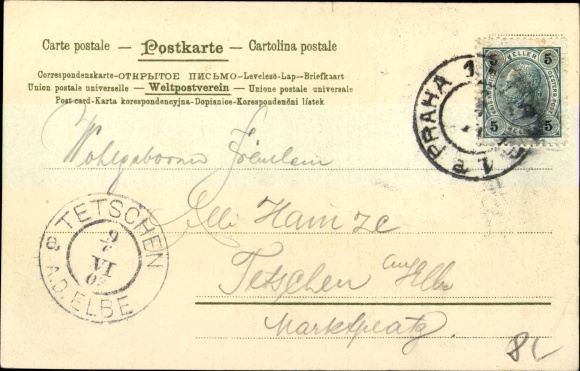 Carte postale — Postkarte — Cartolina postale
Correspondenzkarte-ОТКРЫТОЕ ПИСЬМО-Levelező-Lap-Briefkaart
Union postale universelle — Weltpostverein — Unione postale universale
Post-card-Karta korespondencyjna-Dopisnice-Korespondenční lístek
5 KELLER 5
5 5
PRAHA 1
Wohlgeborene Fräulein
Elli Hainze
Tetschen a/Elbe
Marktplatz.
TETSCHEN
9
VI
A.D. ELBE
e